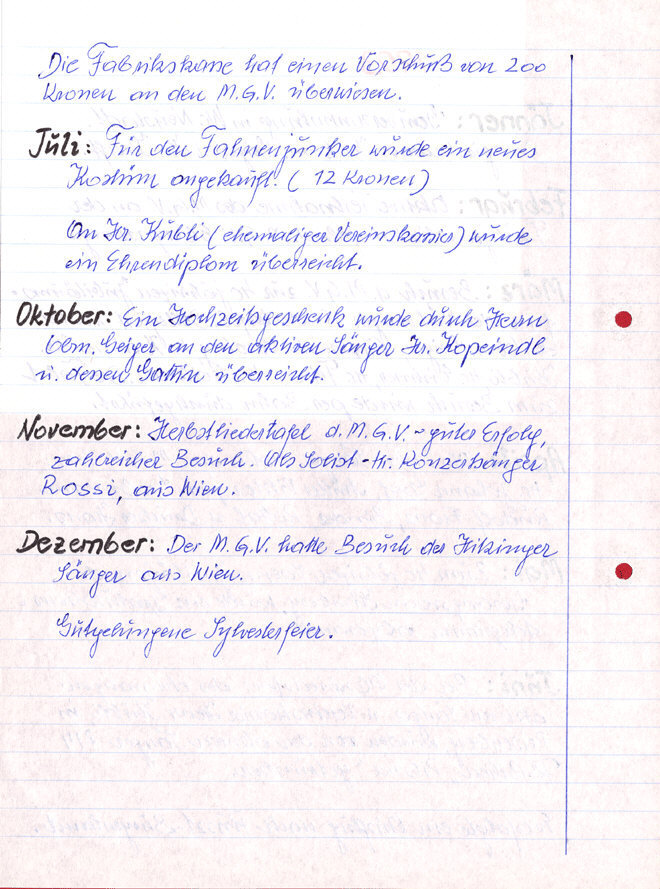 Die Fabrikskasse hat einen Vorschuß von 200
Kronen an den M.G.V. überwiesen.
Juli: Für den Fahnenjunker wurde ein neues
Kostüm angekauft. (12 Kronen)
An Hr. Kubli (ehemaliger Vereinskassier) wurde
ein Ehrendiplom überreicht.
Oktober: Ein Hochzeitsgeschenk wurde durch Herrn
Obm. Geiger an den aktiven Sänger Hr. Kopeindl
u. dessen Gattin überreicht.
November: Herbstliedertafel d. M.G.V. - guter Erfolg,
zahlreicher Besuch. Als Solist - Hr. Konzertsänger
Rossi, aus Wien.
Dezember: Der M.G.V. hatte Besuch der Hitzinger
Sänger aus Wien.
Gutgelungene Sylvesterfeier.